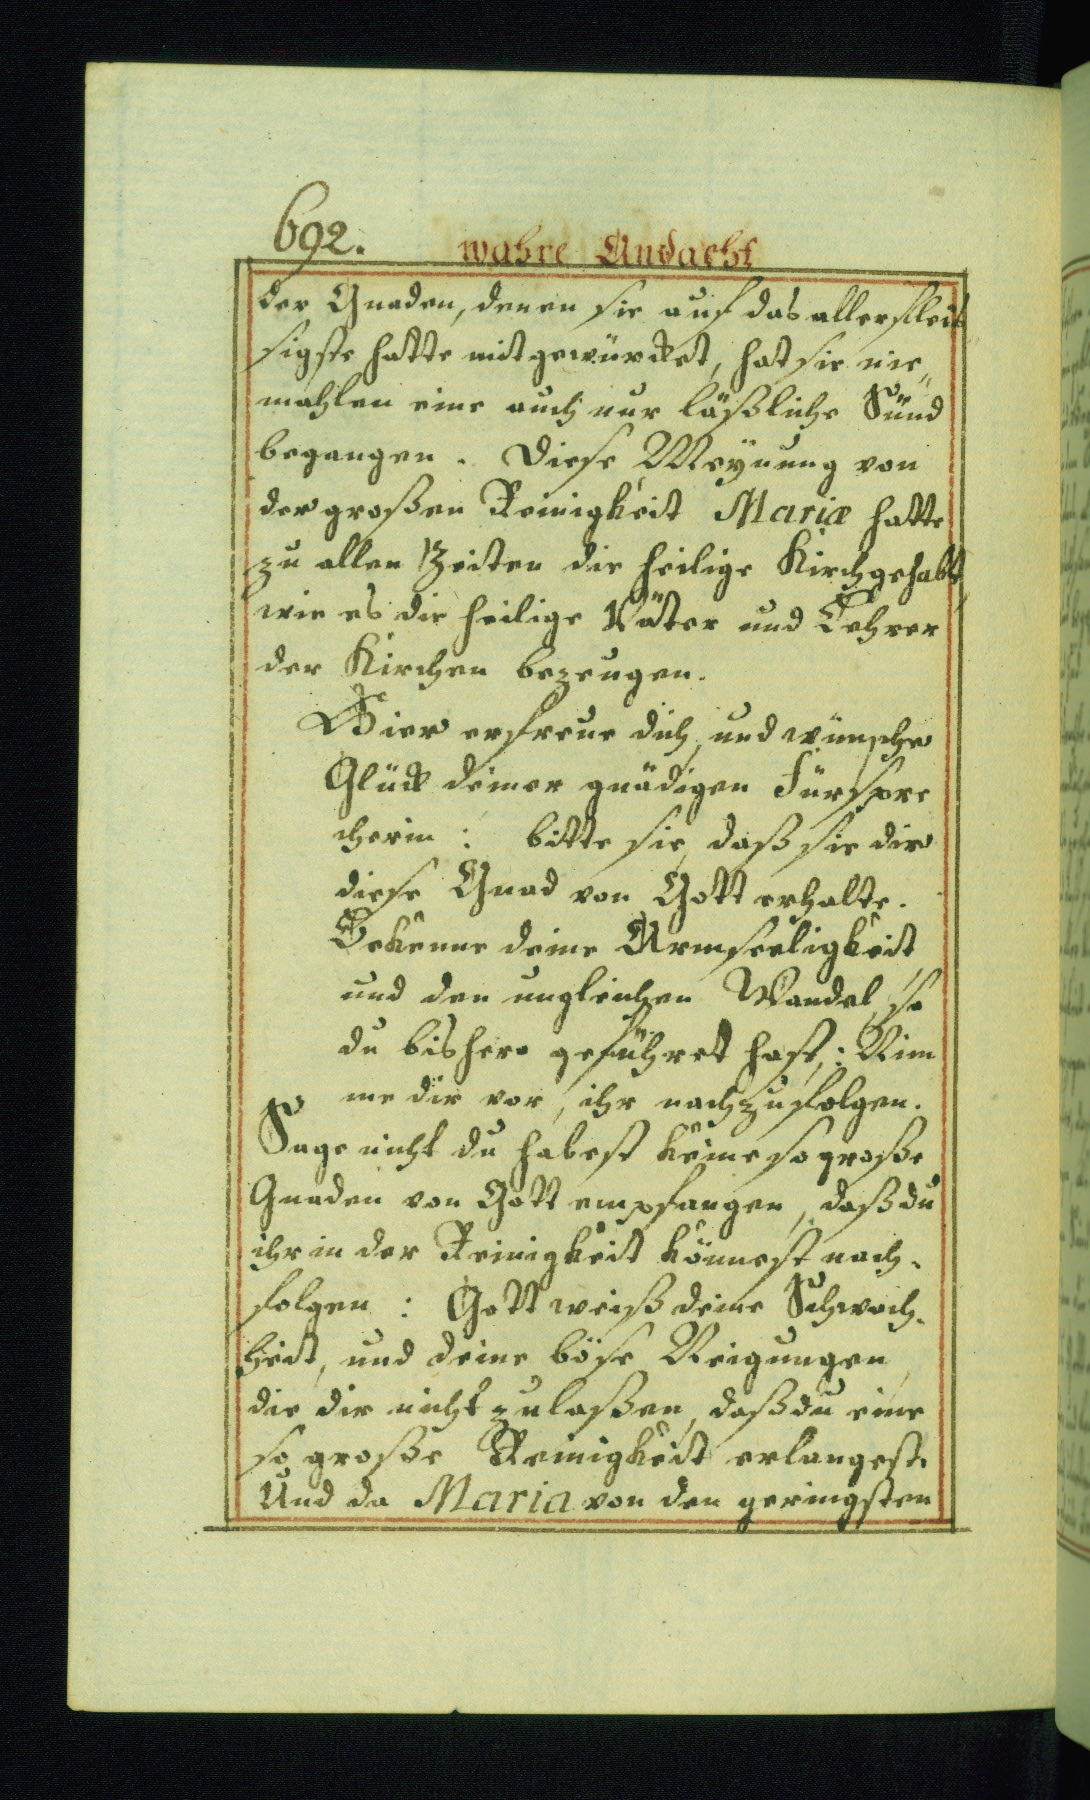 692. wahre Andacht
der Gnaden, denen sie auf das allerfleis
sigste hatte mitgewürcket, hat sie nie„
mahlen eine auch nur läßliche Sünd
begangen. Diese Meÿnung von
der großen Reinigkeit Mariæ hatte
zu allen Zeiten die heilige Kirch gehabt,
wie es die heilige Väter und Lehrer
der Kirchen bezeugen.
Hier erfreue dich, und wünsche
Glück deiner gnädigen Fürspre
cherin: bitte sie, daß sie dir
diese Gnad von Gott erhalte.
Bekenne deine Armseeligkeit
und den ungleichen Wandel, so
du bishero geführet hast,: Nim
me dir vor, ihr nachzufolgen.
Sage nicht du habest keine so große
Gnaden von Gott empfangen, daß du
ihr in der Reinigkeit könnest nach-
folgen: Gott weiß deine Schwach-
heit, und deine böse Neigungen,
die dir nicht zulaßen, daß du eine
so große Reinigkeit erlangest.
Und da Maria von den geringsten